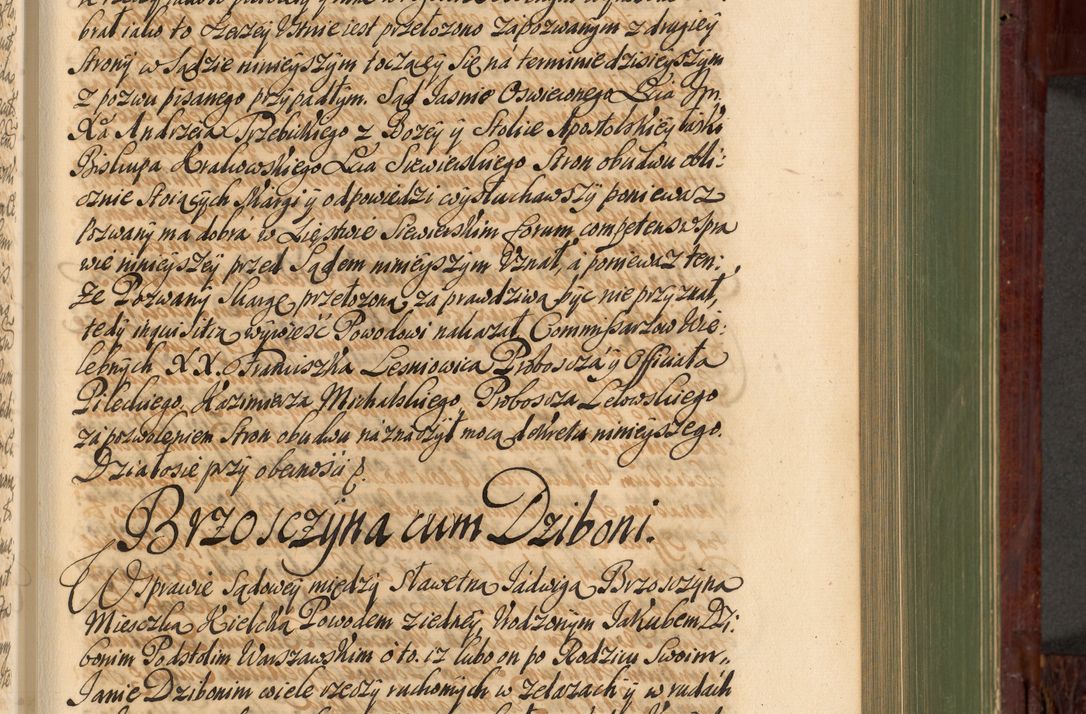 brał iako to szerzey Ustnie iest przełozono zapozwanym z drugiey
Strony w Sądzie ninieyszym toczącey się na terminie dzisieyszym
z pozwu pisanego przypadłym. Sąd Jasnie Oswieconego Xcia Jm
Xa Andrzeia Trzebickiego z Bozey y Stolice Apostolskiey łaski
Biskupa Krakowskiego Xcia Siewierskiego Stron obudwu obli:
cznie stoiących skargi y odpowiedzi wysłuchawszy poniewaz
Pozwany ma dobra w Xięstwie Siewierskim forum competens w Spra
wie ninieyszey przed Sądem ninieyszym Uznał, a poniewaz ten:
ze Pozwany Skargę przełozoną za prawdziwą być nie przyznał,
tedy inquisitią wywieść Powodowi nakazał Commissarzow Wie:
lebnych XX. Franciszka Lesniowica Proboscza y Officiała
Pileckiego, Kazimierza Michalskiego Proboscza Lelowskiego
za pozwoleniem Stron obudwu naznaczył mocą dekretu ninieyszego.
Działosie przy obecności &
Brzosczÿna cum Dziboni.
W Sprawie Sądowey między Sławetną Jadwigą Brzosczyną
Miesczką Kielcką Powodem z iedney, Urodzonym Jakubem Dzi:
bonim Podstolim Warszawskim o to. iz lubo on po Rodzicu Swoim
Janie Dzibonim wiele rzeczy ruchomych w zelazach y w rudach